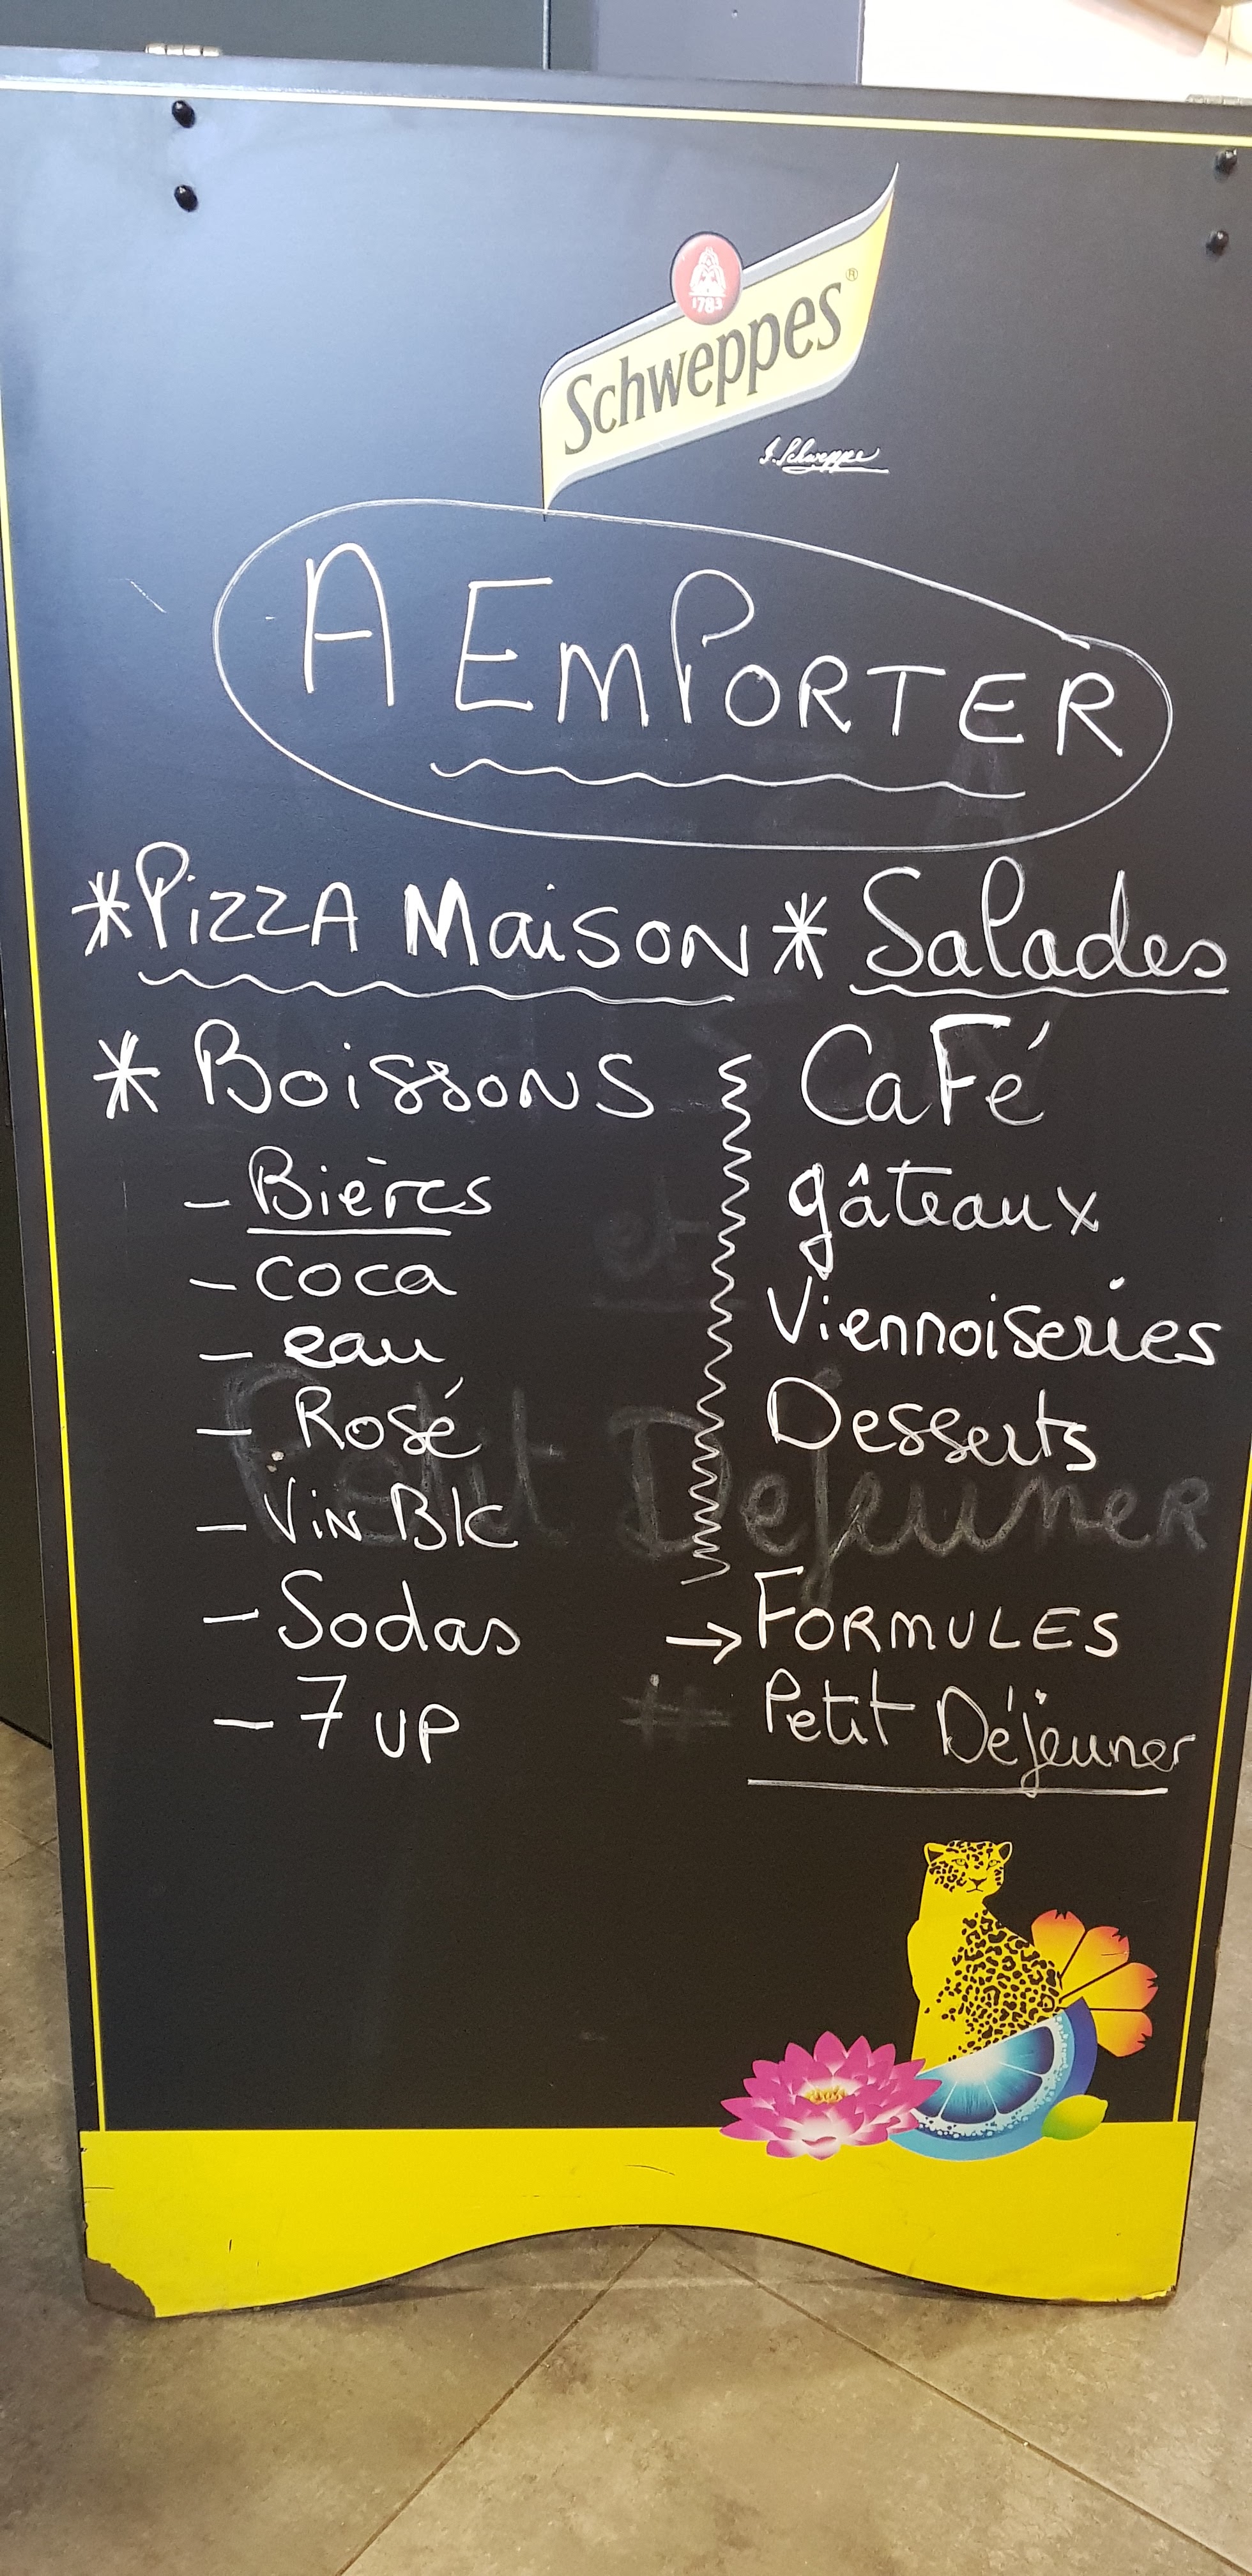 1783
Schweppes®
J. Schweppe
A EmPORTER
*PizzA MaiSON * Salades
* BoissoNS
- Bières
- coca
- eau
- Rosé
- ViN Blc
- Sodas
- 7 UP
CaFé
gâteaux
Viennoiseries
Desserts
→ FORMULES
Petit Déjeuner
et
Petit DéjeuneR